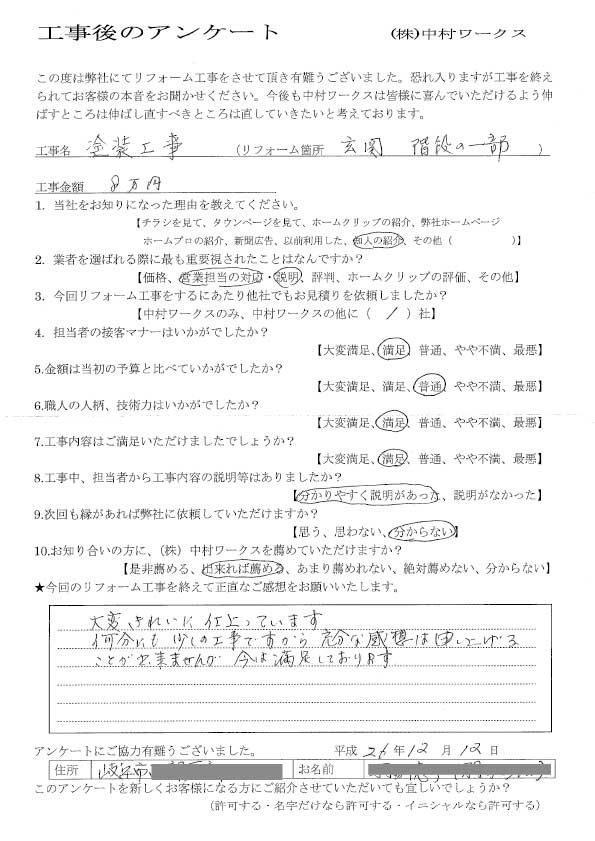 工事後のアンケート (株)中村ワークス
この度は弊社にてリフォーム工事をさせて頂き有難うございました。恐れ入りますが工事を終え
られてお客様の本音をお聞かせください。今後も中村ワークスは皆様に喜んでいただけるよう伸
ばすところは伸ばし直すべきところは直していきたいと考えております。
工事名 塗装工事 (リフォーム箇所 玄関 階段の一部 )
工事金額 8万円
1. 当社をお知りになった理由を教えてください。
【チラシを見て、タウンページを見て、ホームクリップの紹介、弊社ホームページ
ホームプロの紹介、新聞広告、以前利用した、知人の紹介、その他( )】
2. 業者を選ばれる際に最も重要視されたことはなんですか?
【価格、営業担当の対応・説明、評判、ホームクリップの評価、その他】
3. 今回リフォーム工事をするにあたり他社でもお見積りを依頼しましたか?
【中村ワークスのみ、中村ワークスの他に( / )社】
4. 担当者の接客マナーはいかがでしたか?
【大変満足、満足、普通、やや不満、最悪】
5.金額は当初の予算と比べていかがでしたか?
【大変満足、満足、普通、やや不満、最悪】
6.職人の人柄、技術力はいかがでしたか?
【大変満足、満足、普通、やや不満、最悪】
7.工事内容はご満足いただけましたでしょうか?
【大変満足、満足、普通、やや不満、最悪】
8.工事中、担当者から工事内容の説明等はありましたか?
【分かりやすく説明があった、説明がなかった】
9.次回も縁があれば弊社に依頼していただけますか?
【思う、思わない、分からない】
10.お知り合いの方に、(株)中村ワークスを薦めていただけますか?
【是非薦める、出来れば薦める、あまり薦めれない、絶対薦めない、分からない】
★今回のリフォーム工事を終えて正直なご感想をお願いいたします。
大変きれいに仕上っています
何分にも少しの工事ですから充分な感想は申し上げる
ことが出来ませんが今は満足しております
アンケートにご協力有難うございました。 平成 26 年 12 月 12 日
住所 岐阜市 お名前
このアンケートを新しくお客様になる方にご紹介させていただいても宜しいでしょうか?
(許可する・名字だけなら許可する・イニシャルなら許可する)